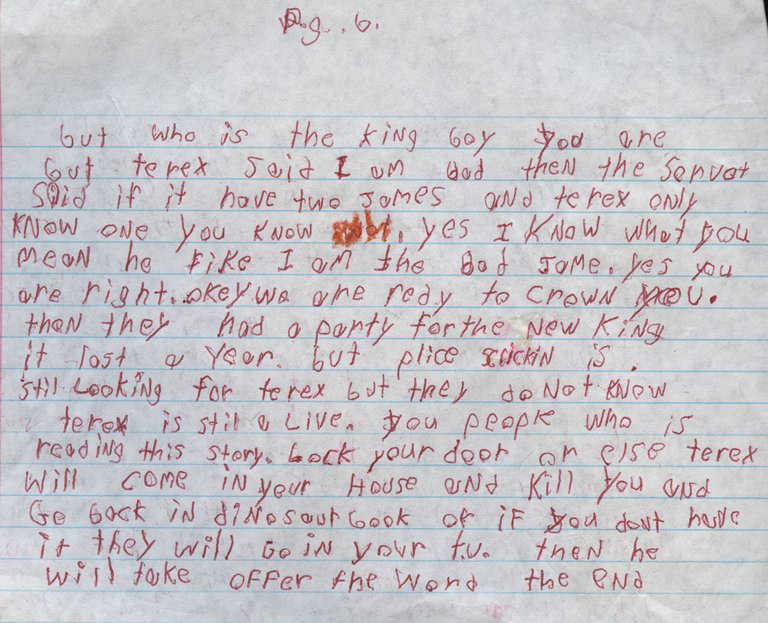 Pg. 6.
but who is the king boy you are
but terex said I am bad then the Sarvat
Said if it have two James and terex only
know one you know . yes I know what you
mean he Fike I am the bad Jame. yes you
are right. okey we are redy to crown you.
then they had a party for the new King
it last a year. but plice is .
still Looking for terex but they do Not know
terex is still a Live. you people who is
reading this story. Lock your door or else terex
Will come in your House and Kill you and
Go back in dinosaur book or if you dont have
it they will Go in your t.v. then he
will take offer the Word the end